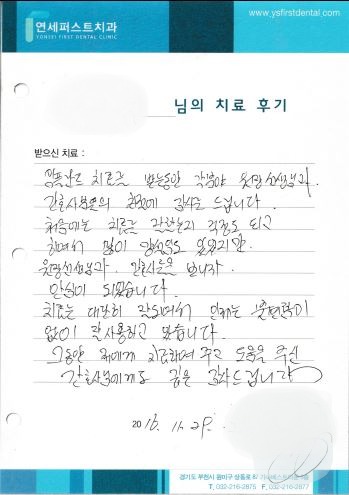 연세퍼스트치과
YONSEI FIRST DENTAL CLINIC
www.ysfirstdental.com
님의 치료 후기
받으신 치료 :
임플란트 치료를 받는동안 각분야 원장선생님과
간호사분들의 친절에 감사를 드립니다.
처음에는 치료를 잘할는지 걱정도 되고
하면서 많이 망설임도 있었지만
원장선생님과 간호사들을 보니까
안심이 되었습니다.
치료는 대단히 잘되어서 인제는 불편함이
없이 잘사용하고 있습니다.
그동안 저에게 치료하여 주고 도움을 주신
간호사님에게도 깊은 감사드립니다
2016. 11. 29.
경기도 부천시 원미구 상동로 87
T. 032-216-2875 F. 032-216-2877